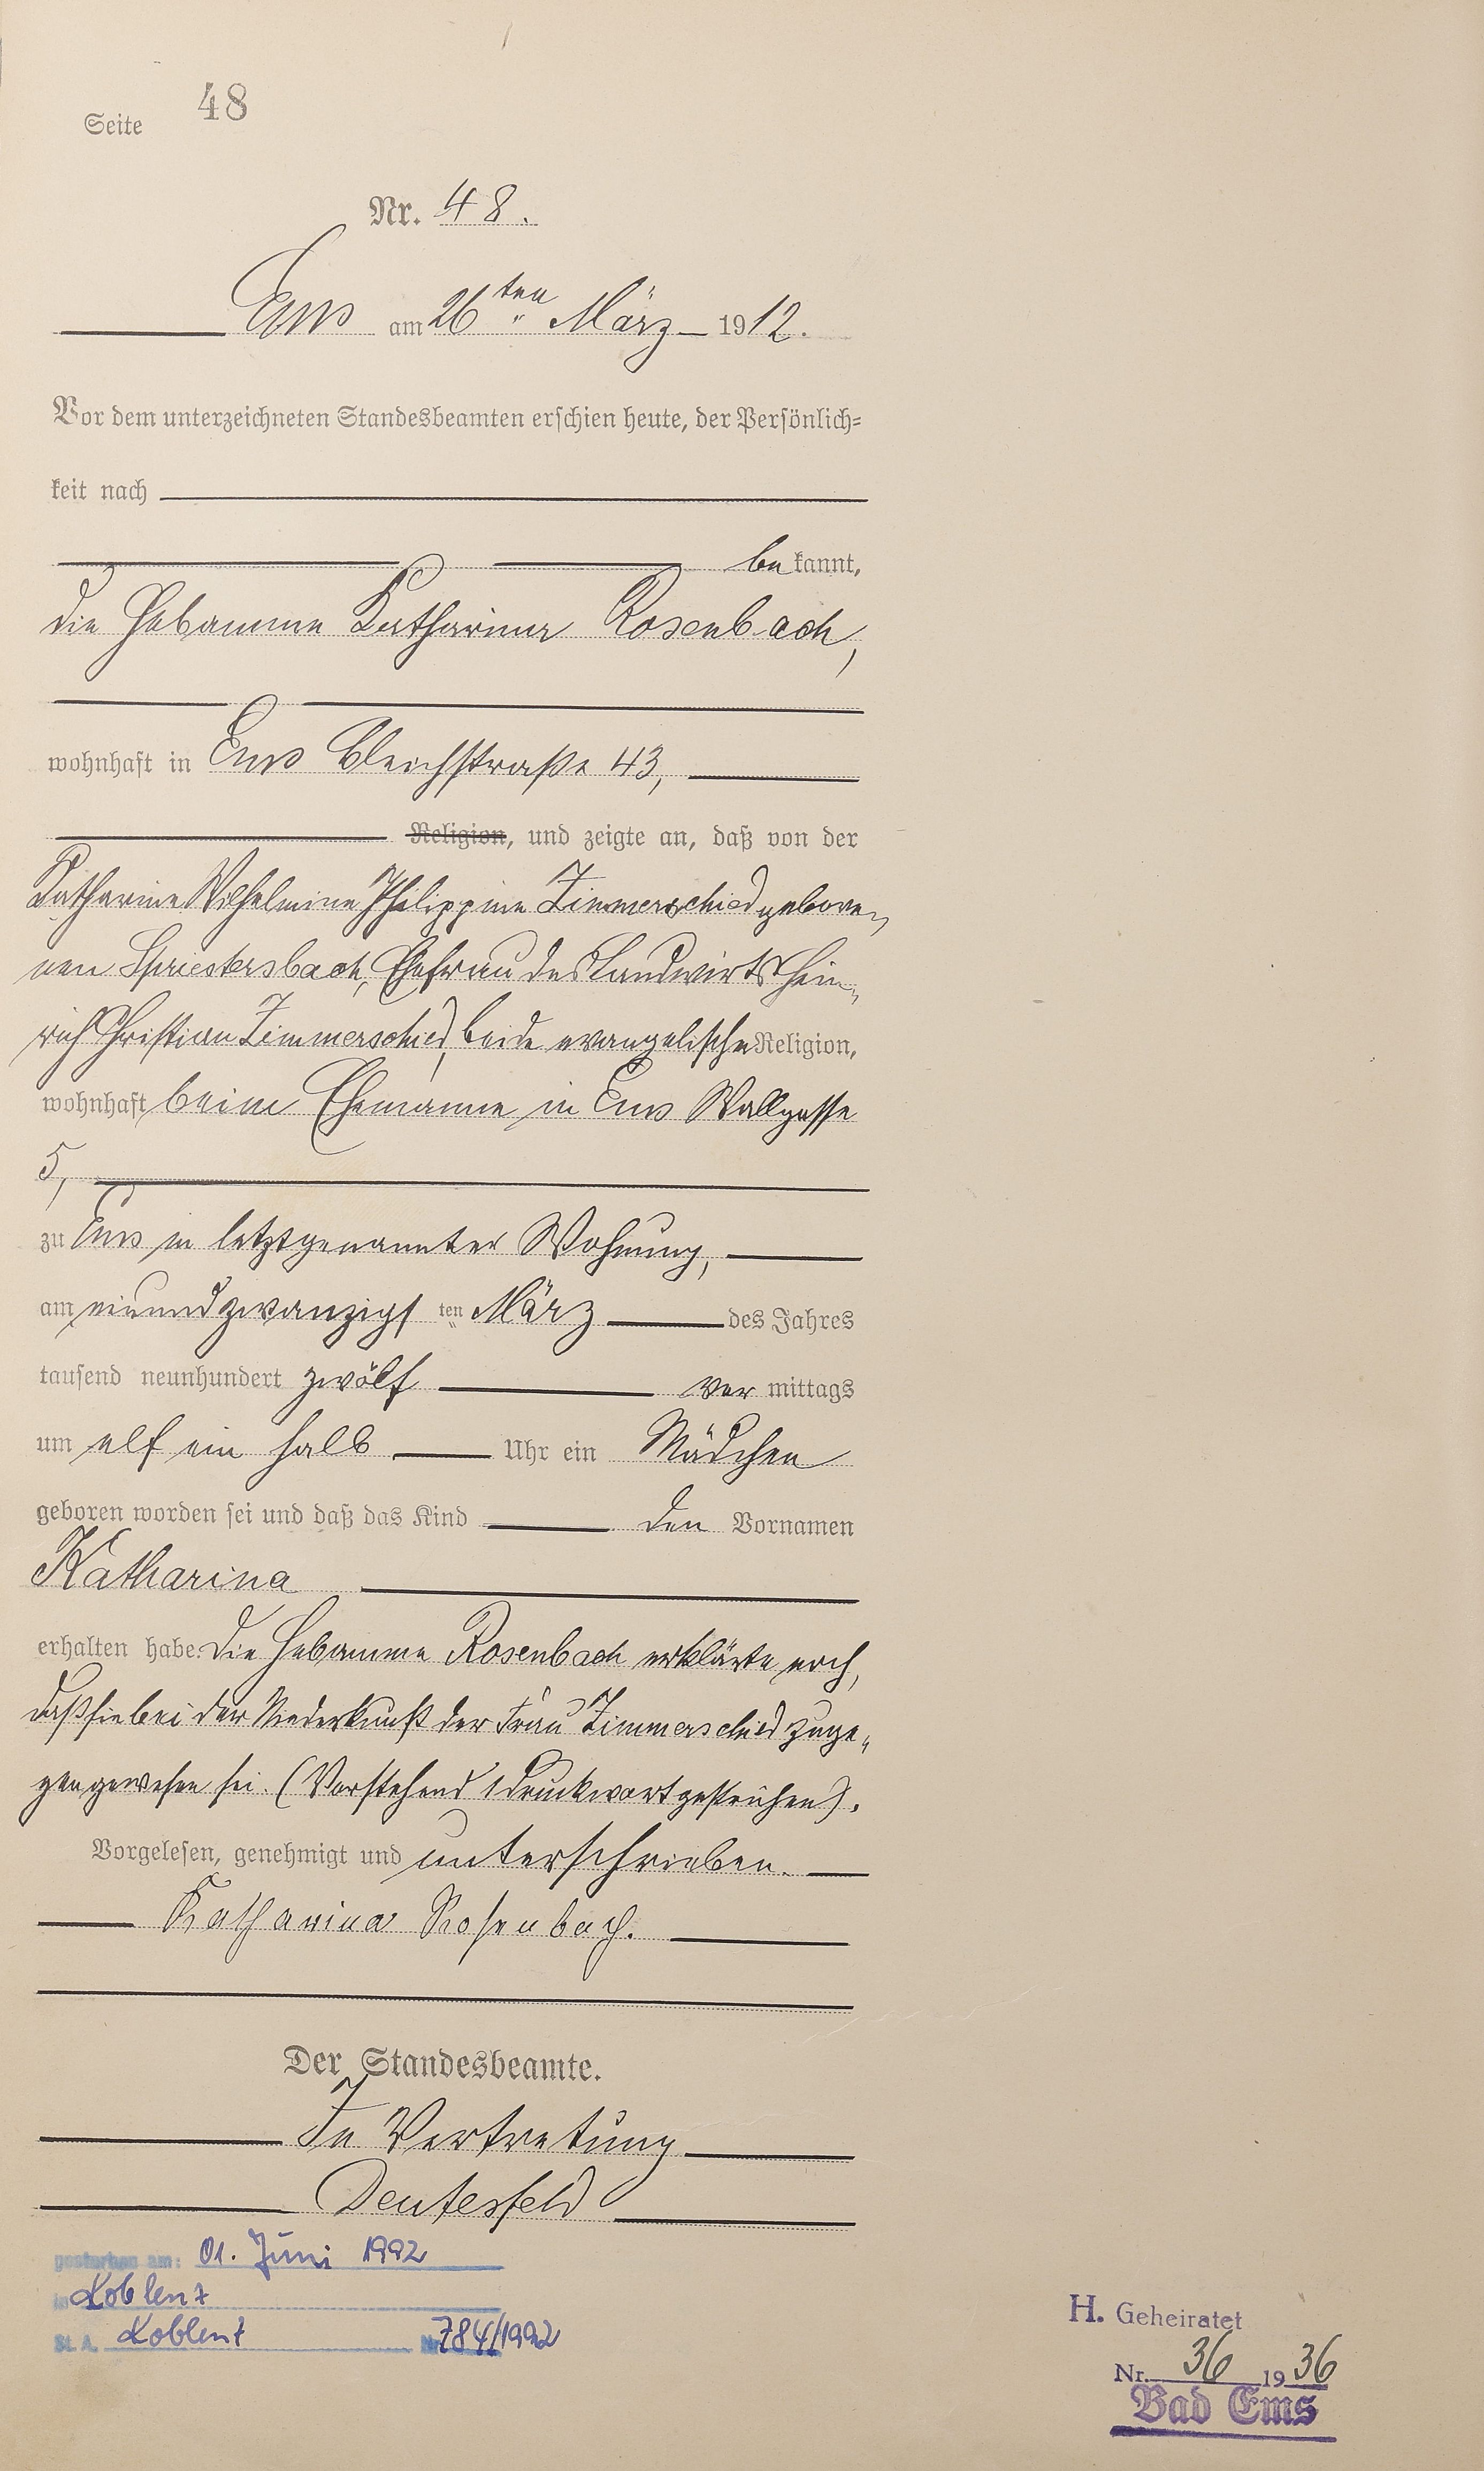 Seite 48
Nr. 48.
Ems am 26ten März 1912.
Vor dem unterzeichneten Standesbeamten erschien heute, der Persönlich-
keit nach
bekannt,
die Hebamme Katharina Rosenbach,
wohnhaft in Ems Bleichstraße 43,
Religion, und zeigte an, daß von der
Katharine Wilhelmine Philippine Zimmerschied gebore-
nen Spriestersbach, Ehefrau des Landwirts Hein-
rich Christian Zimmerschied, beide evangelischer Religion,
wohnhaft beim Ehemanne in Ems Wallgasse
5,
zu Ems in letztgenannter Wohnung,
am einundzwanzigsten März des Jahres
tausend neunhundert zwölf vormittags
um elf ein halb Uhr ein Mädchen
geboren worden sei und daß das Kind den Vornamen
Katharina
erhalten habe. Die Hebamme Rosenbach erklärte noch,
daß sie bei der Niederkunft der Frau Zimmerschied zuge-
gen gewesen sei. (Vorstehend 1 Druckwort gestrichen).
Vorgelesen, genehmigt und unterschrieben.
Katharina Rosenbach.
Der Standesbeamte.
In Vertretung
gestorben am: 01. Juni 1992
in Koblenz
St. A. Koblenz Nr. 784/1992
H. Geheiratet
Nr. 36 1936
Bad Ems